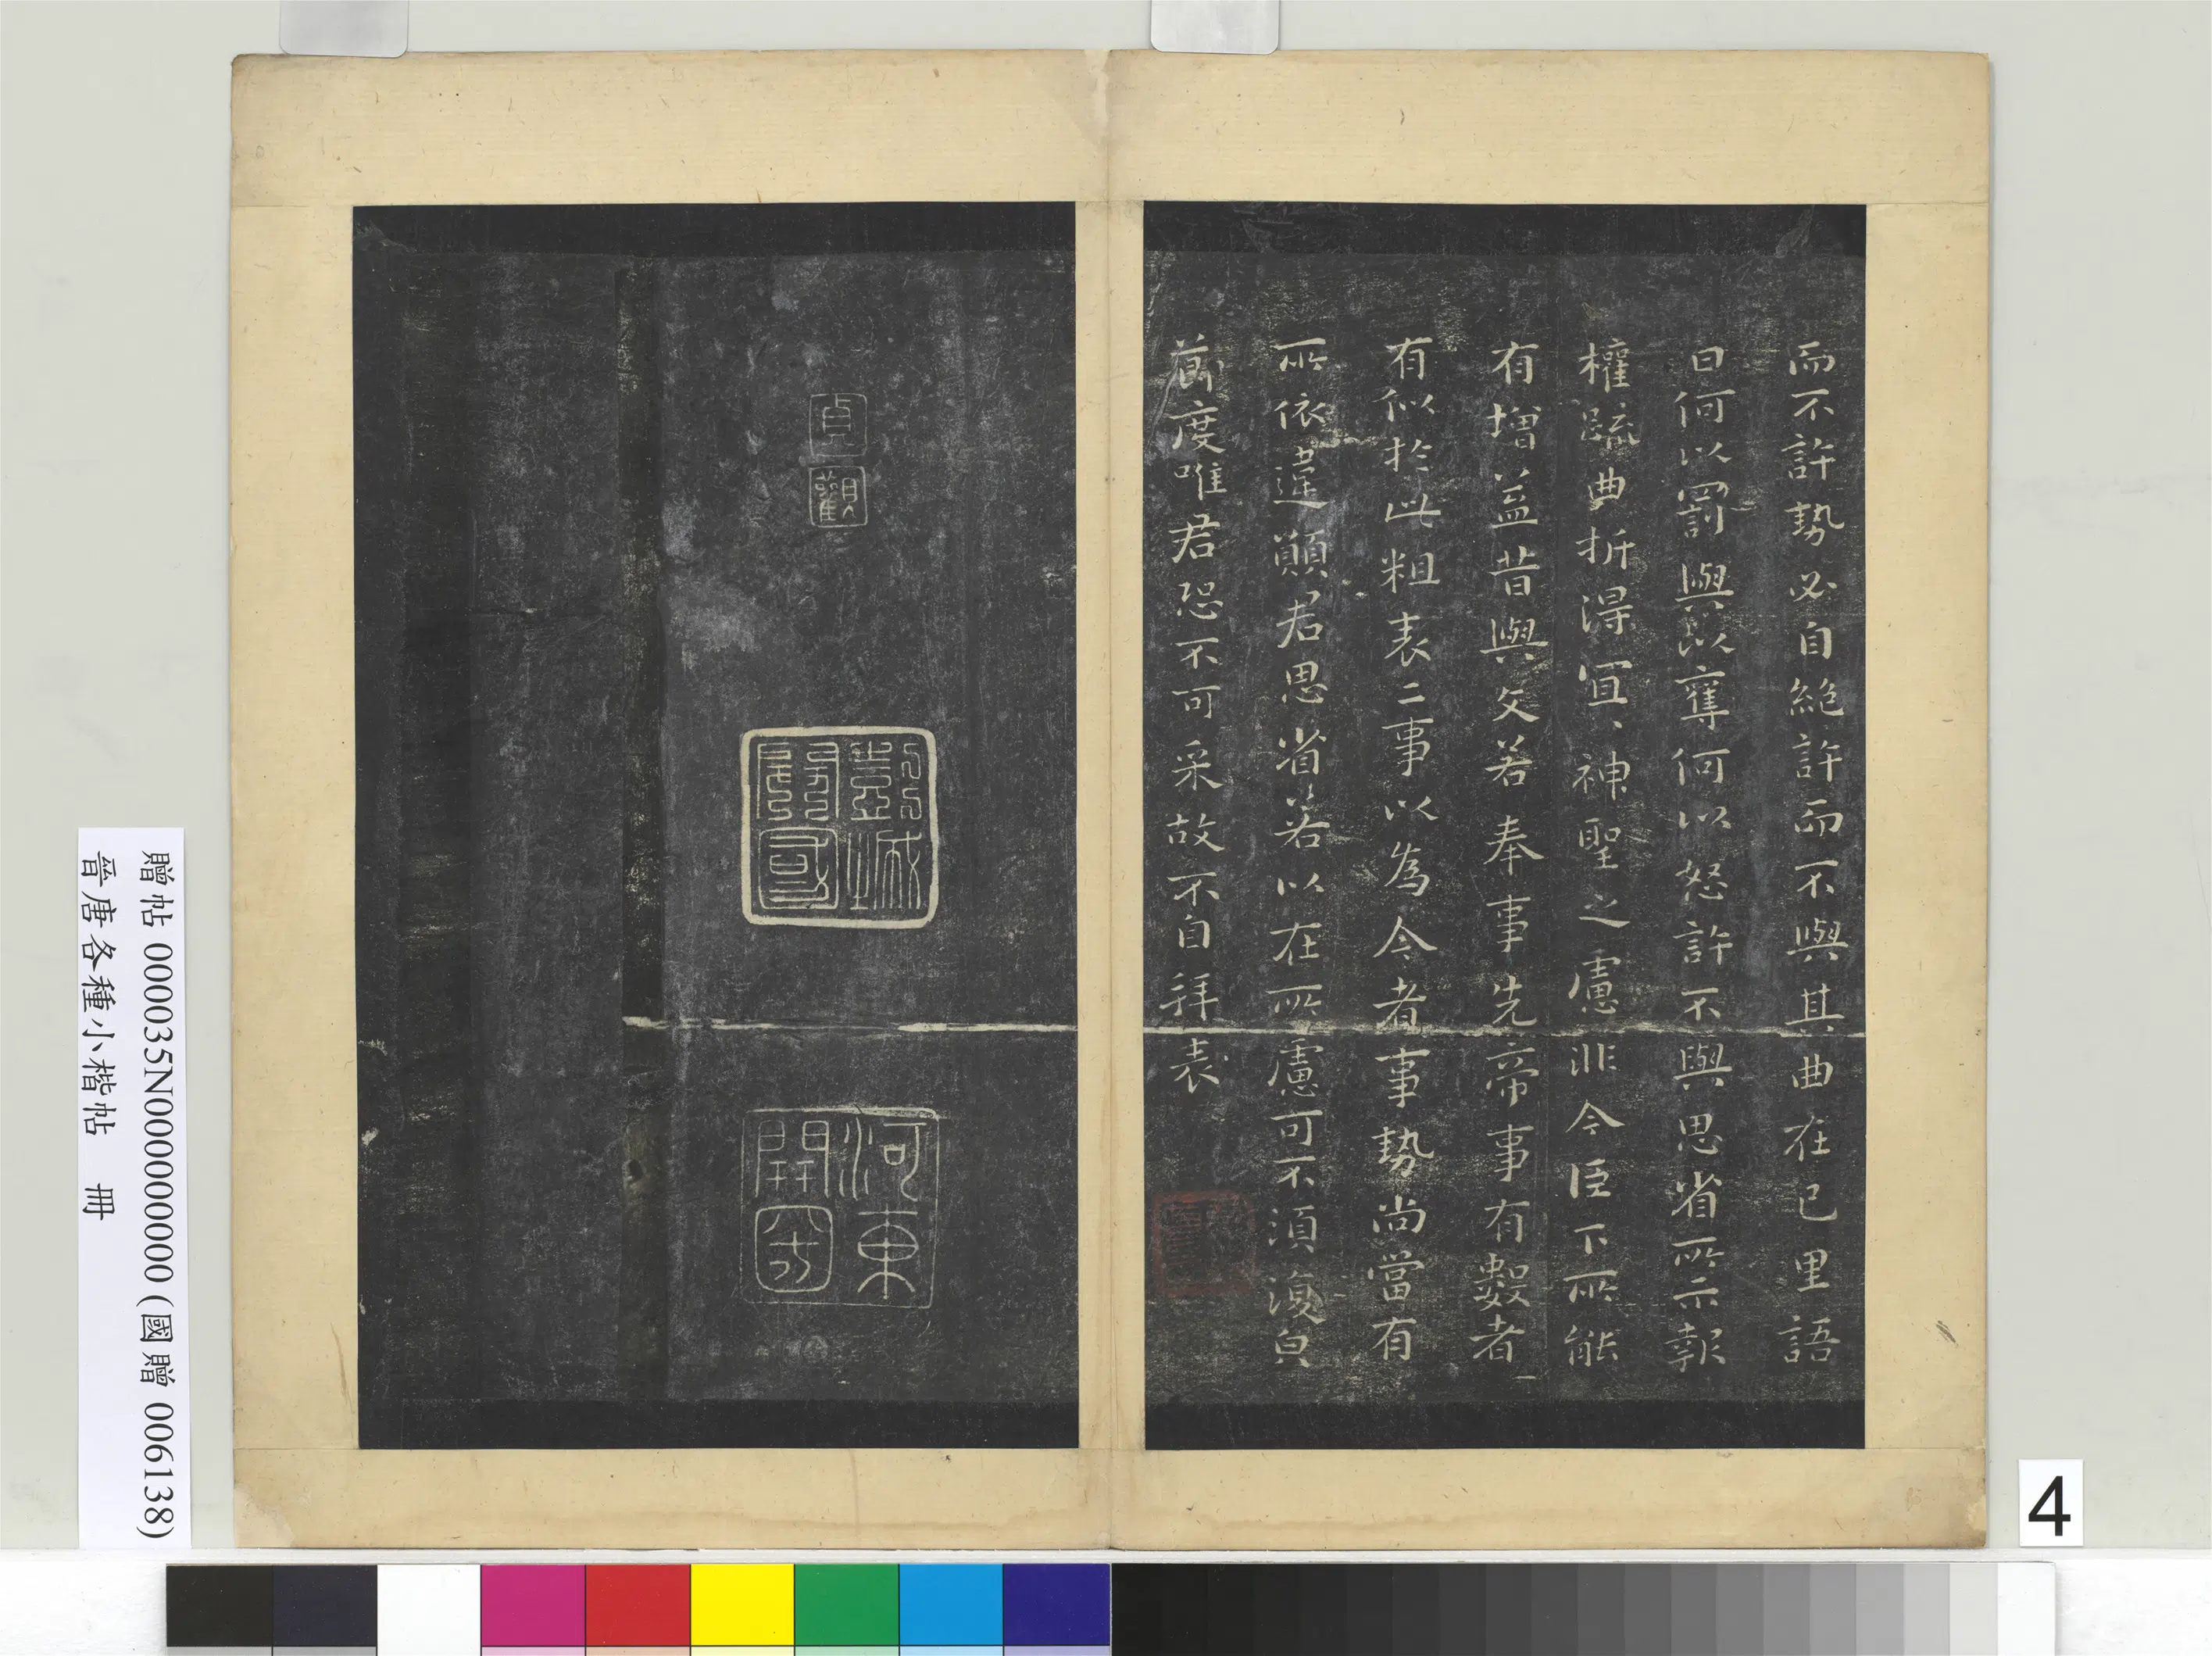 而不許勢必自絕許而不與其曲在己里語
曰何以罰與以奪何以怒許不與思省所示報
權疏曲折得宜、神聖之慮非今臣下所能
有增益昔與文若奉事先帝事有數者
有似於此粗表二事以為今者事勢尚當有
所依違願君思省若以在所慮可不須復皃
節度唯君恐不可采故不自拜表
貞
觀
河東
開國
贈帖 000035N000000000 (國贈 006138)
晉唐各種小楷帖 冊
4